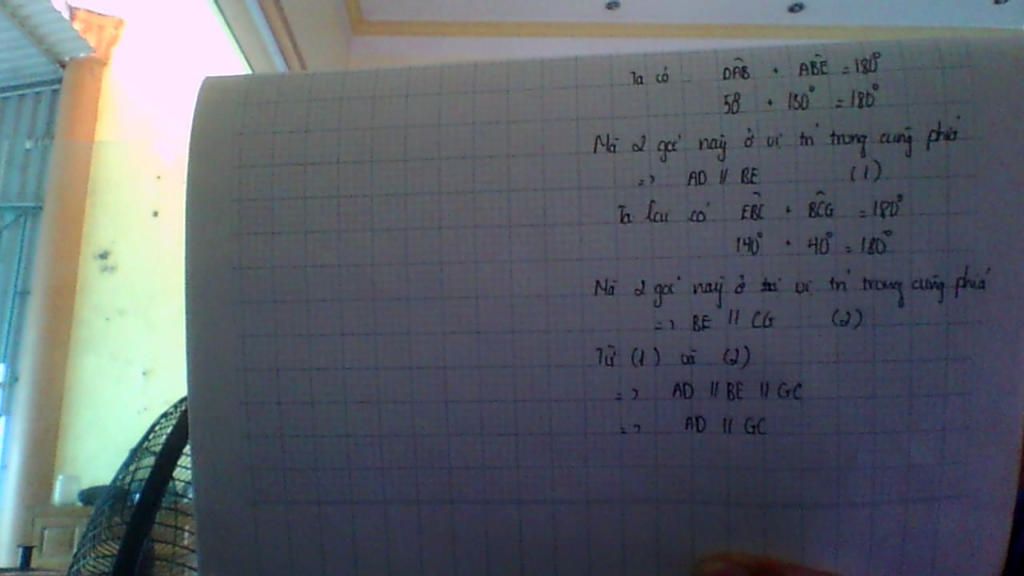 Ta có DAB + ABE = 180°
58 + 130° = 180°
Mà 2 góc này ở vị trí trong cùng phía
=> AD // BE (1)
Ta lại có EBC + BCG = 180°
140° + 40° = 180°
Mà 2 góc này ở vị trí trong cùng phía
=> BE // CG (2)
Từ (1) và (2)
=> AD // BE // GC
=> AD // GC